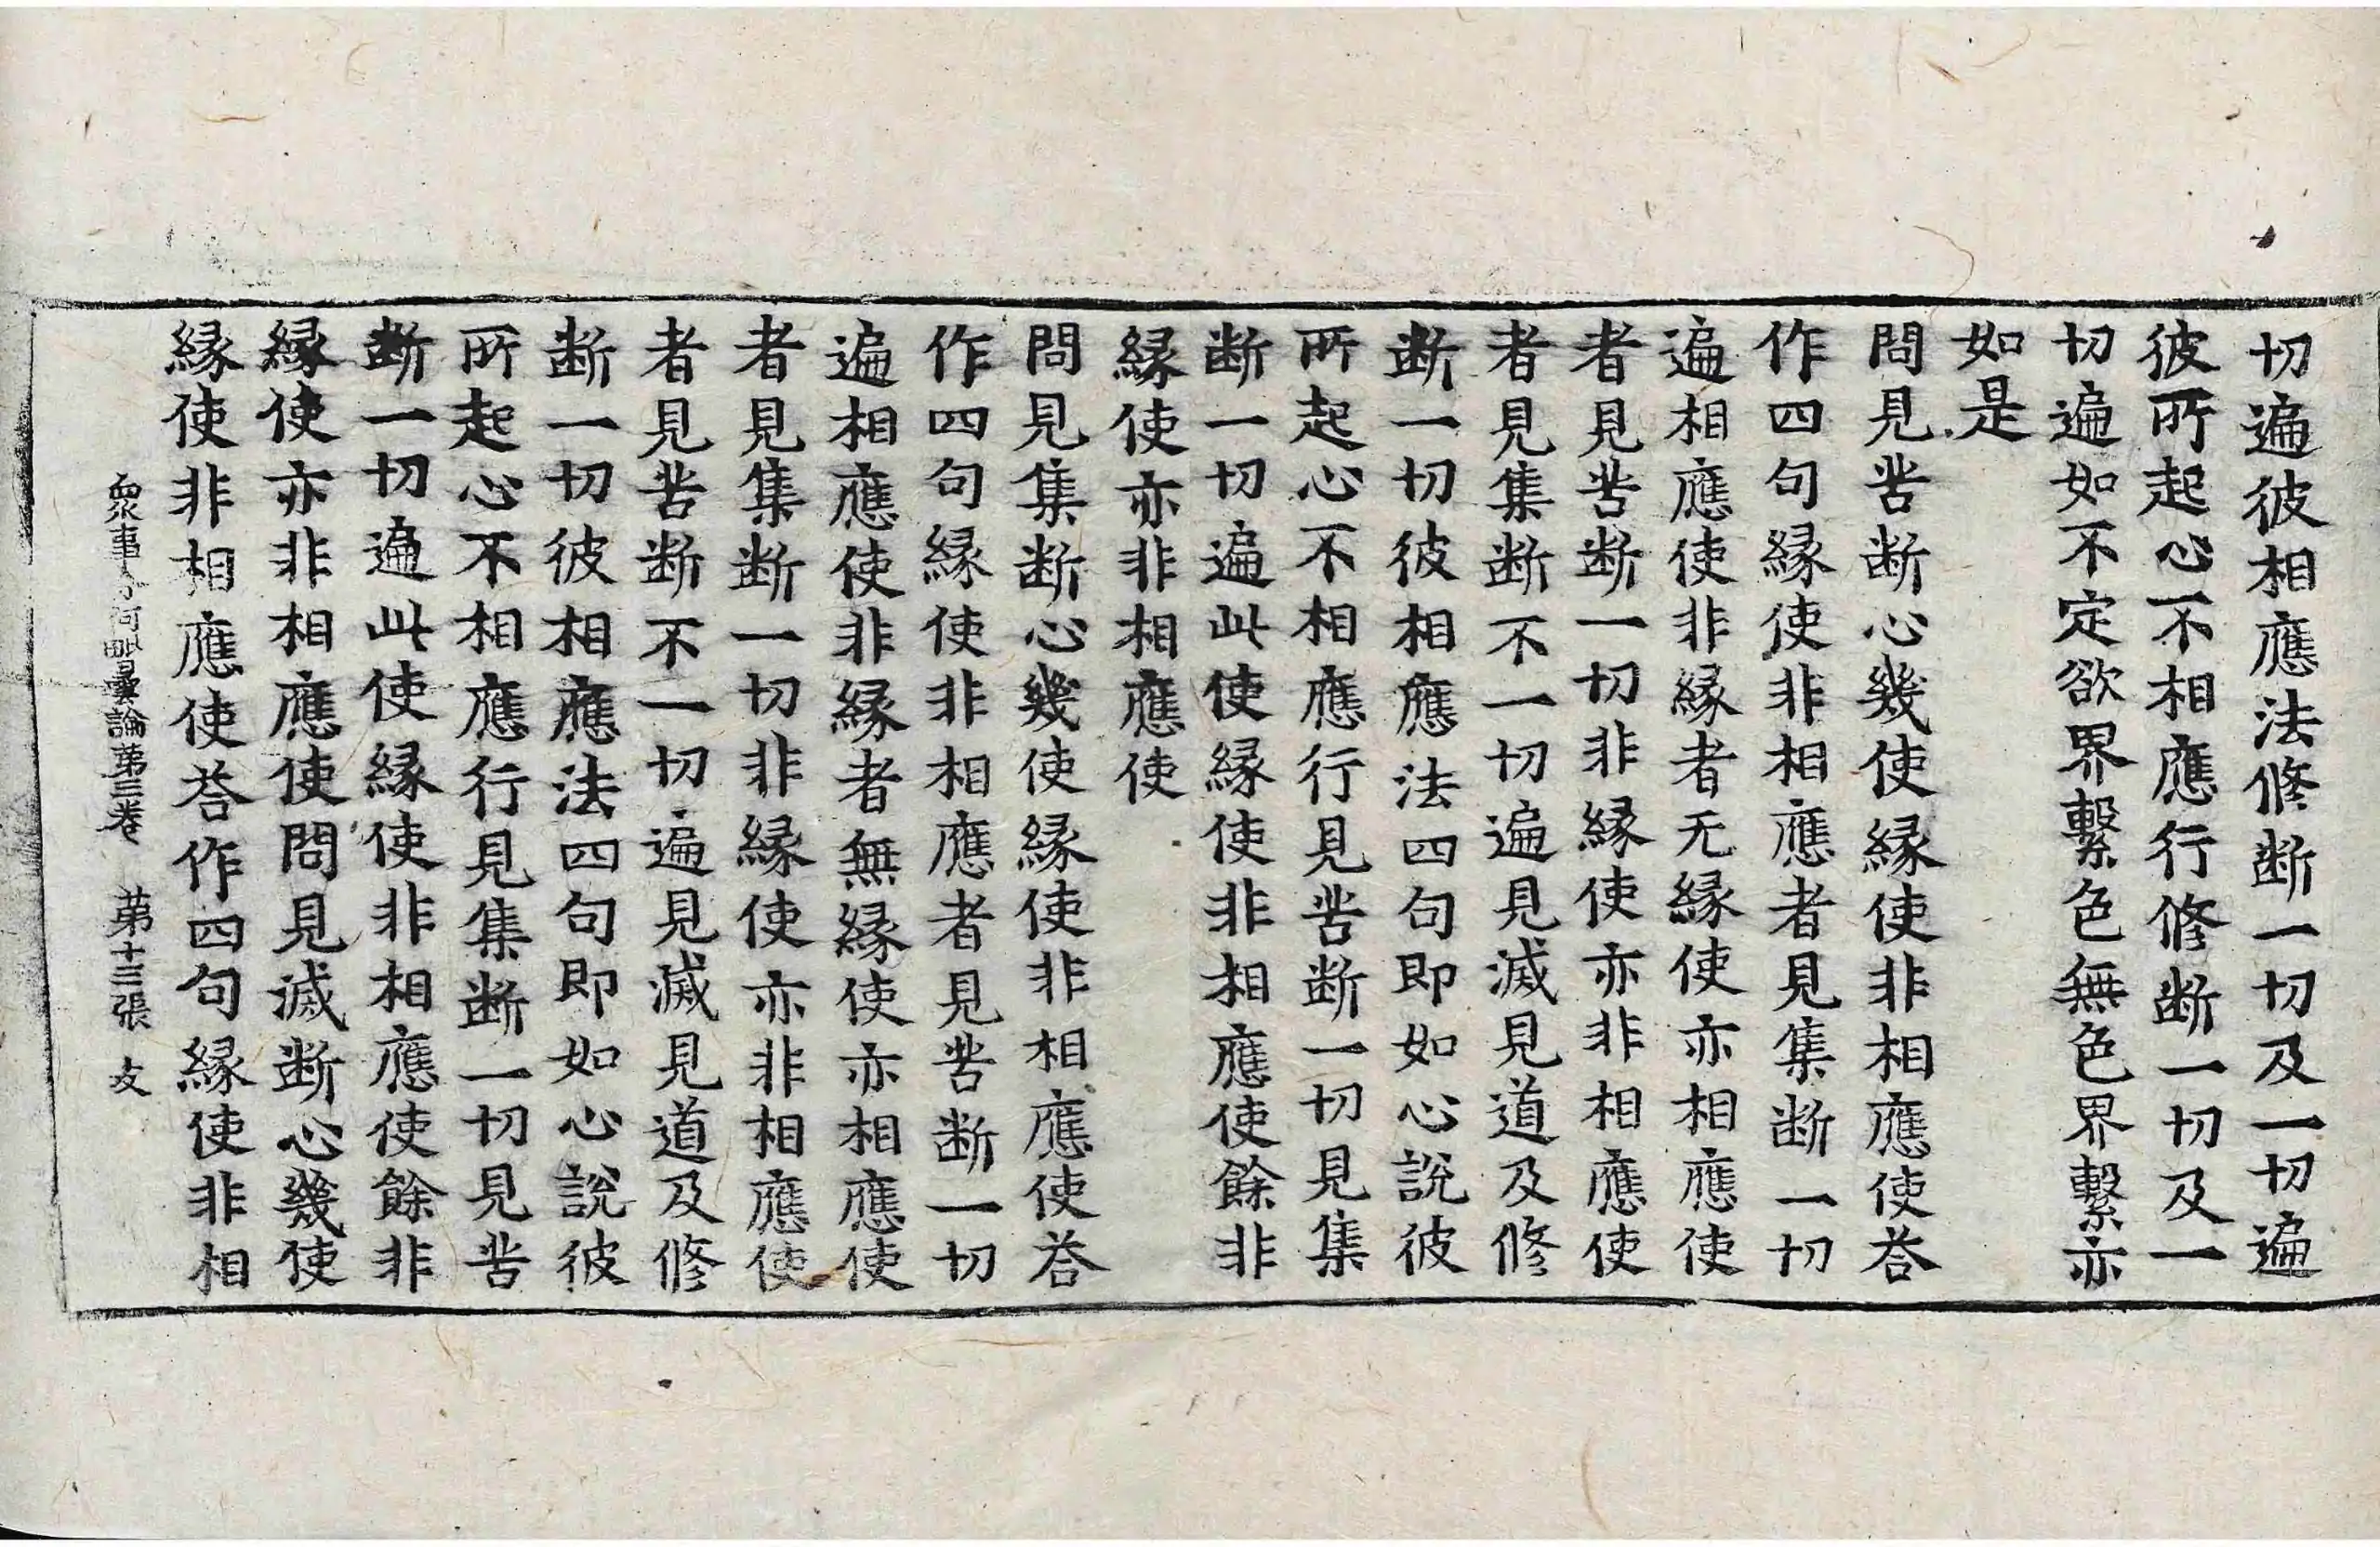 切遍彼相應法修断一切及一切遍
彼所起心不相應行修断一切及一
切遍如不定欲界繫色無色界繫亦
如是
問見苦断心幾使縁使非相應使荅
作四句縁使非相應者見集断一切
遍相應使非縁者无縁使亦相應使
者見苦断一切非縁使亦非相應使
者見集断不一切遍見滅見道及修
断一切彼相應法四句即如心說彼
所起心不相應行見苦断一切見集
断一切遍此使縁使非相應使餘非
縁使亦非相應使
問見集断心幾使縁使非相應使荅
作四句縁使非相應者見苦断一切
遍相應使非縁者無縁使亦相應使
者見集断一切非縁使亦非相應使
者見苦断不一切遍見滅見道及修
断一切彼相應法四句即如心說彼
所起心不相應行見集断一切見苦
断一切遍此使縁使非相應使餘非
縁使亦非相應使問見滅断心幾使
縁使非相應使荅作四句縁使非相
衆事分阿毗曇論第三卷 第十三張 攴